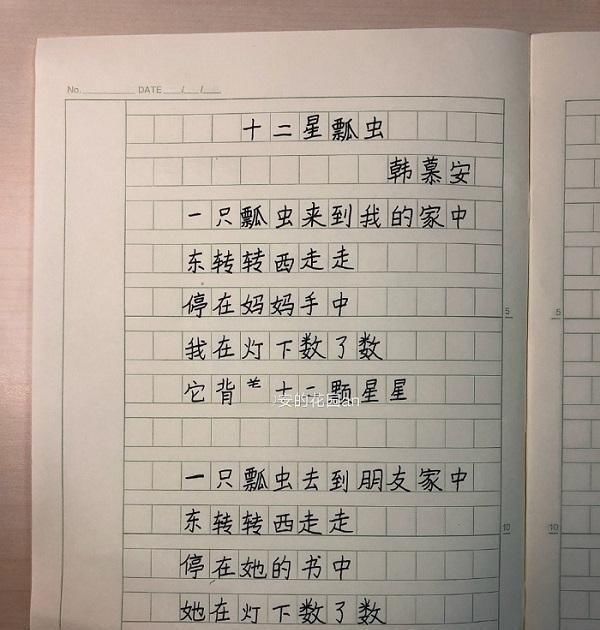 No. DATE / /
十二星瓢虫
韩慕安
一只瓢虫来到我的家中
东转转西走走
停在妈妈手中
我在灯下数了数
它背 十二颗星星
安的花园an
一只瓢虫去到朋友家中
东转转西走走
停在她的书中
她在灯下数了数
5
10
5
10